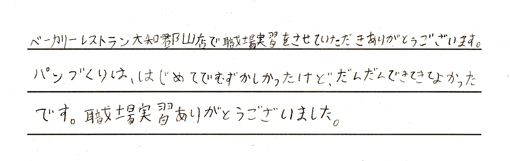 ベーカリーレストラン大和郡山店で職場実習をさせていただきありがとうございます。
パンづくりは、はじめてでむずかしかったけど、だんだんできてきてよかった
です。職場実習ありがとうございました。